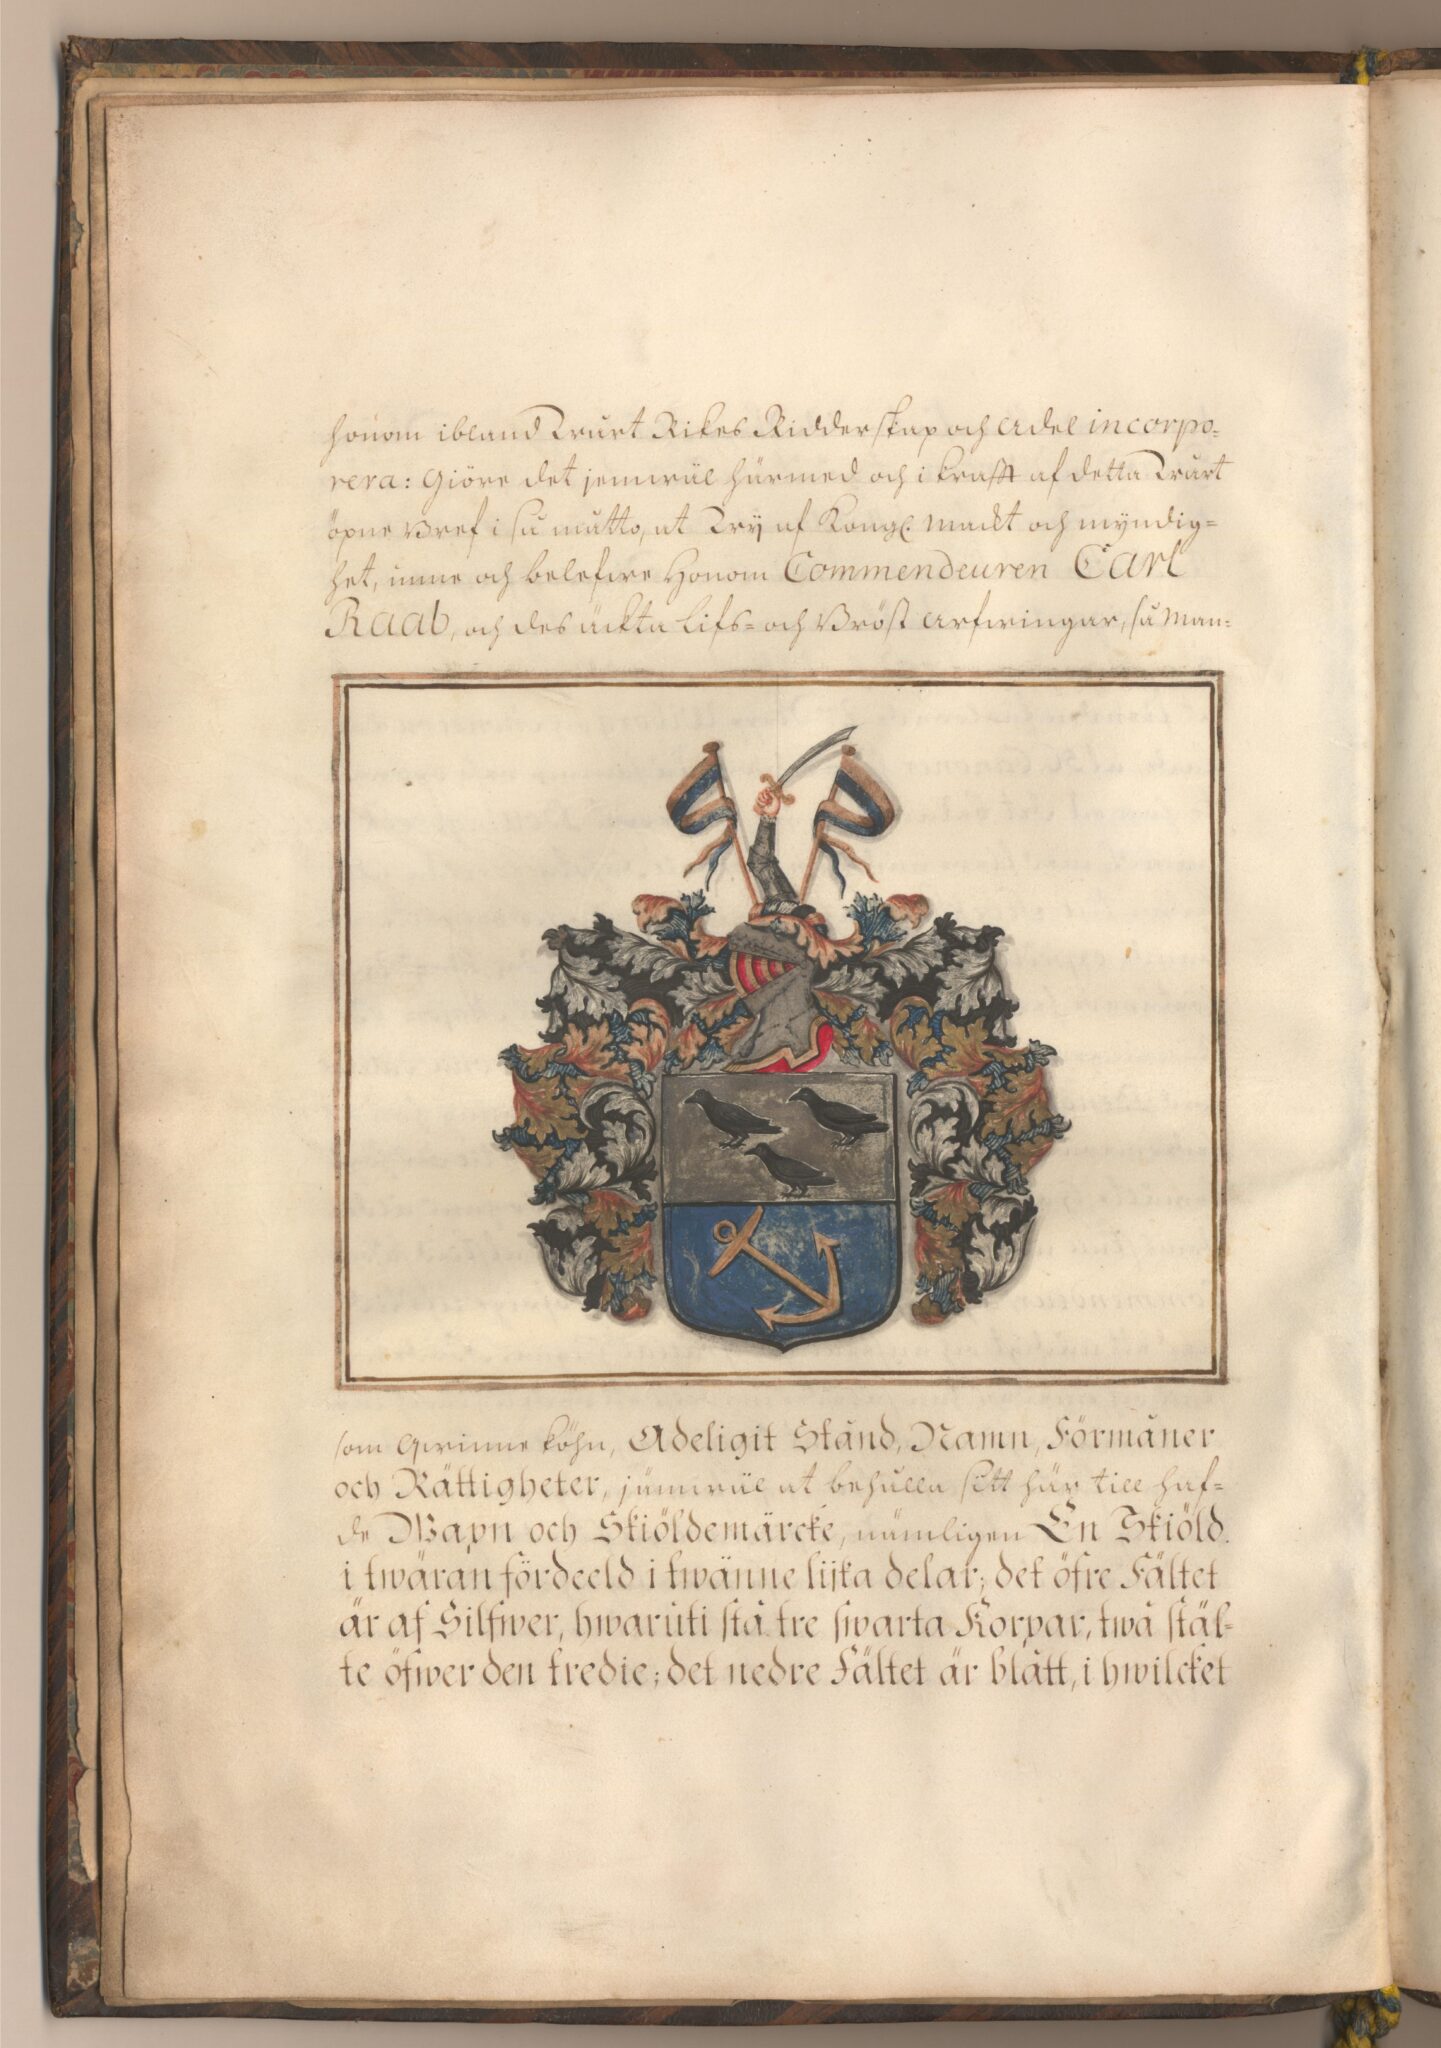 honom ibland Wårt Rikes Ridderskap och Adel incorpo=
rera: Giöre det jemwäl härmed och i krafft af detta Wårt
öpne Bref i så måtto, at Wij af Kongl. Mackt och myndig=
het, unne och bekefwe Honom Commendeuren Carl
Raab, och des äckta Lifs= och Bröst Arfwingar, så Man=
som Qwinne köhn, Adeligit Stånd, Namn, Förmåner
och Rättigheter, jämwäl at behålla sitt här till haf=
de Wapn och Skiöldemärcke, nämligen En Skiöld.
i twäran fördeeld i twänne lijka delar; det öfre Fältet
är af Silfwer, hwaruti stå tre swarta Korpar, twå stäl=
te öfwer den tredie; det nedre Fältet är blått, i hwilcket